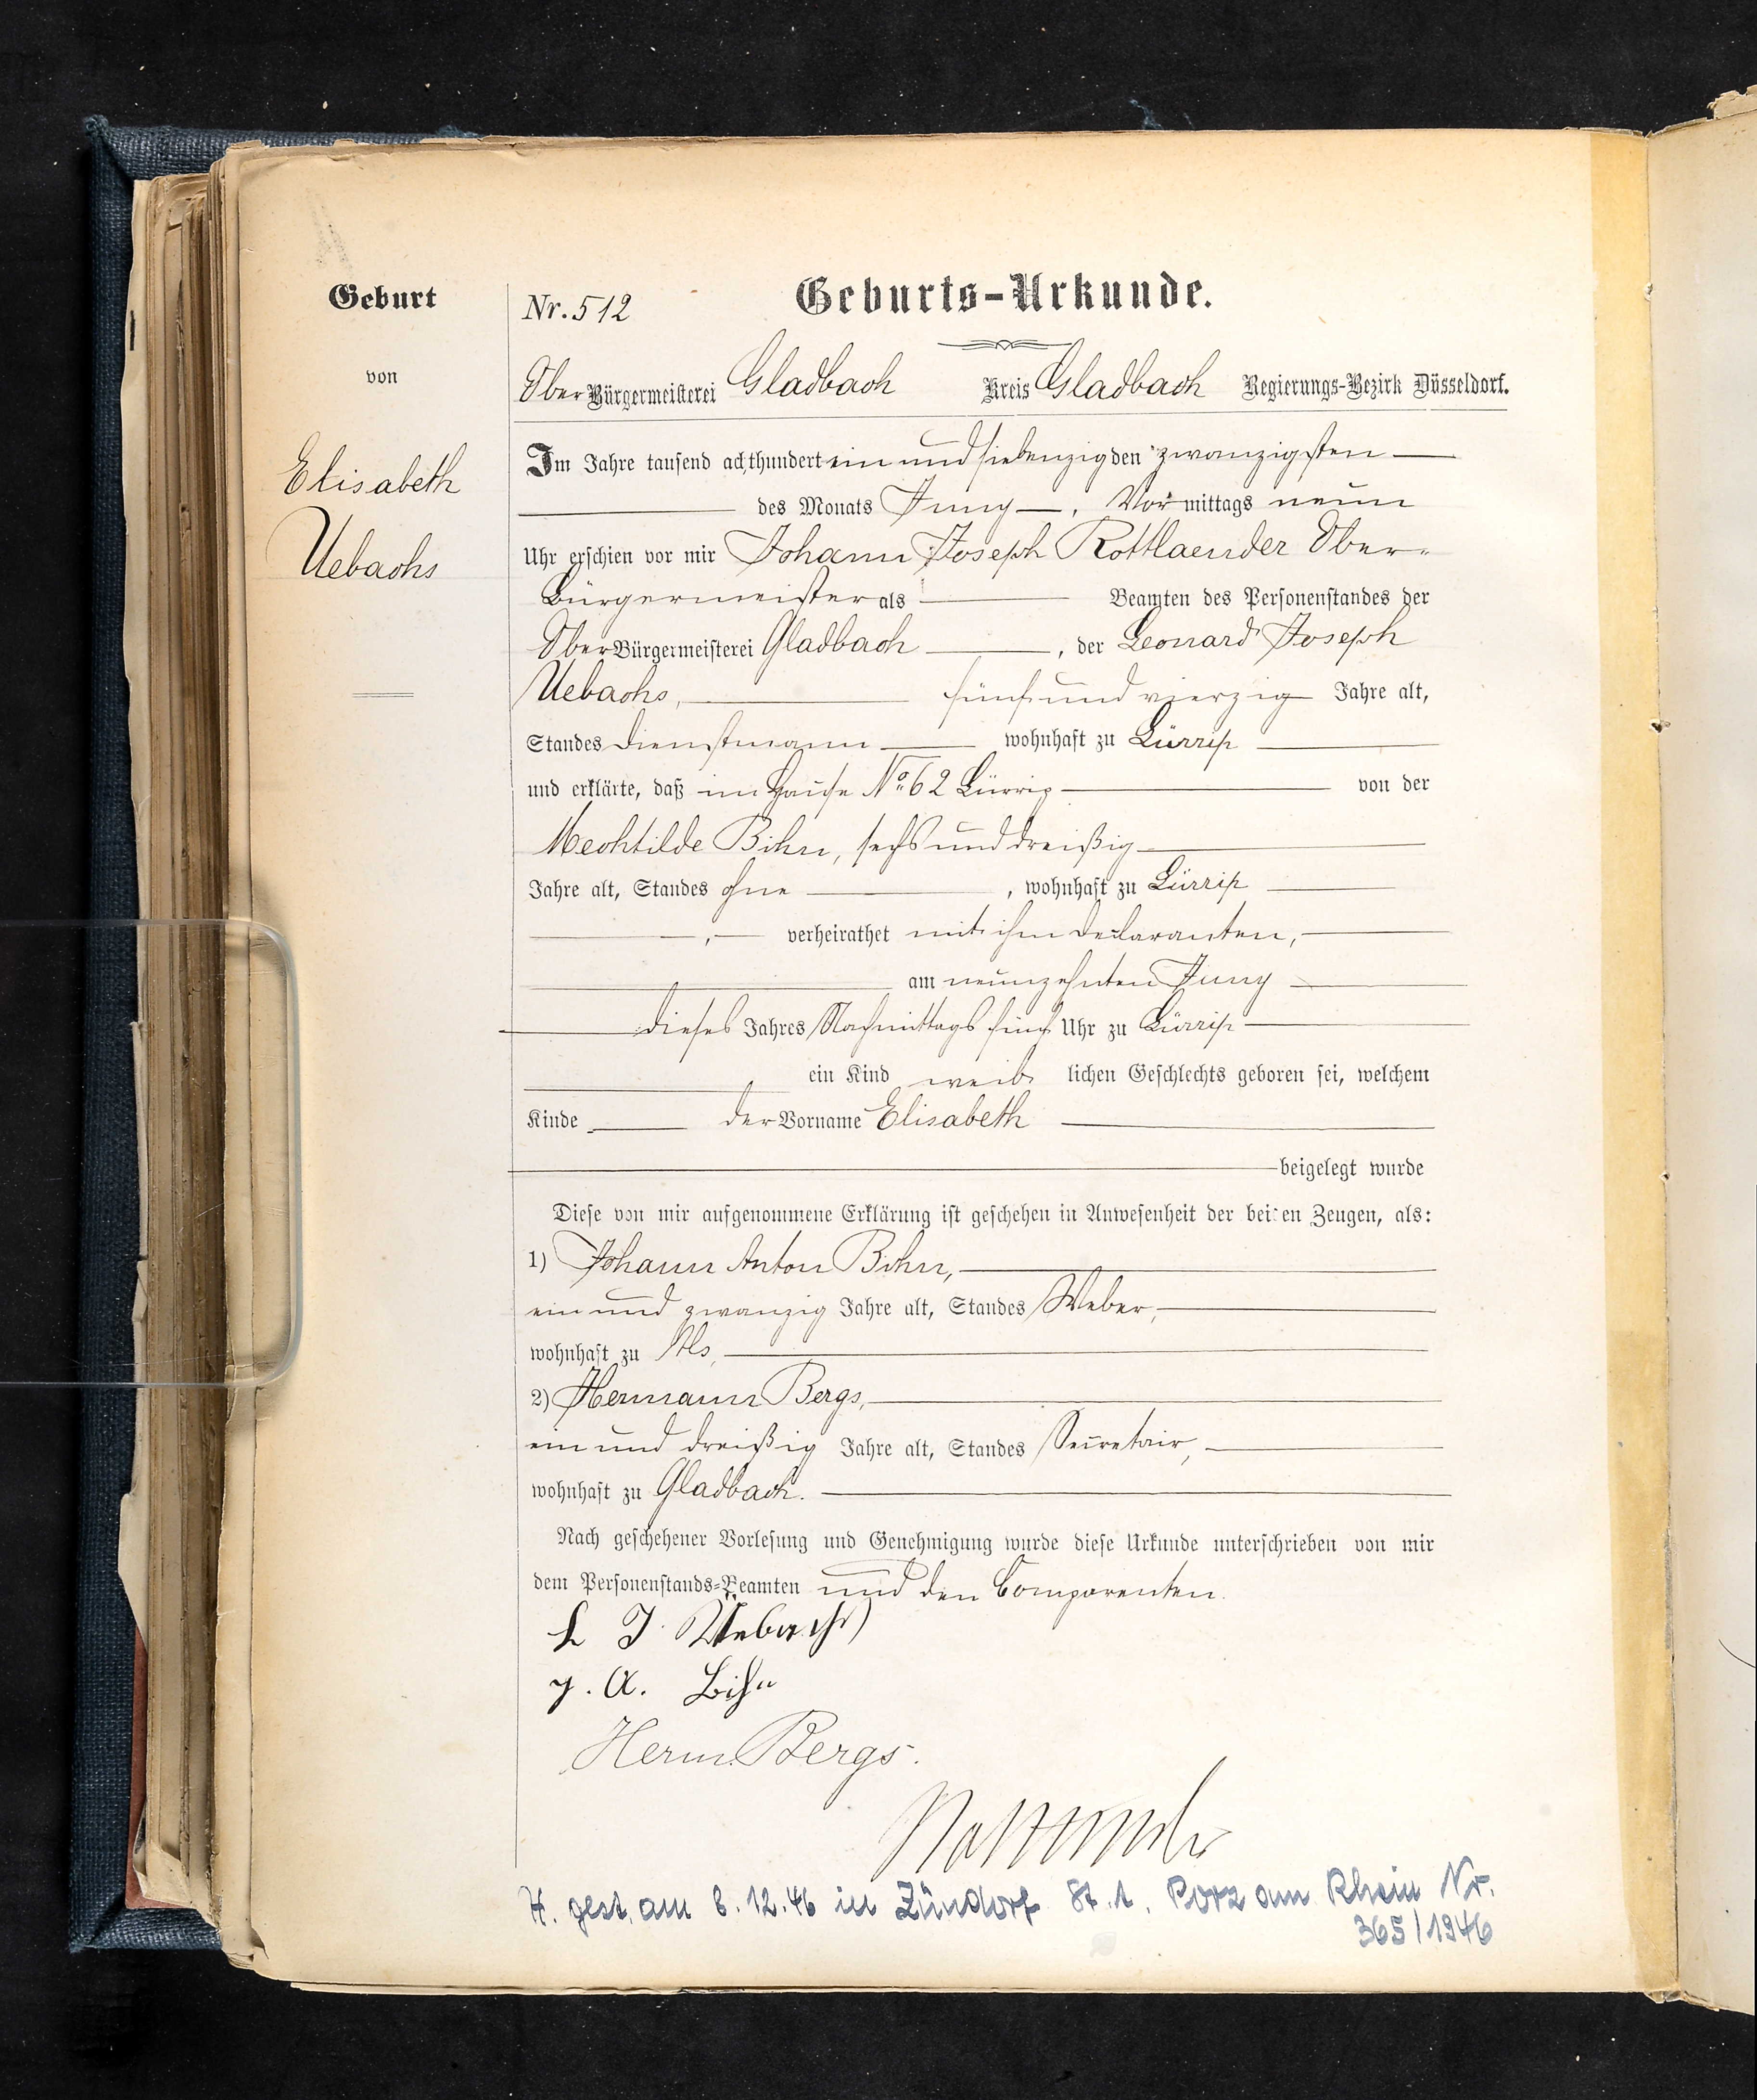 Geburt
von
Elisabeth
Uebachs
Nr. 512 Geburts-Urkunde.
Ober Bürgermeisterei Gladbach Kreis Gladbach Regierungs-Bezirk Düsseldorf.
Im Jahre tausend achthundert ein und siebenzig den zwanzigsten
des Monats Juny, Vormittags neun
Uhr erschien vor mir Johann Joseph Rottlaender Ober-
bürgermeister als Beamten des Personenstandes der
Ober Bürgermeisterei Gladbach, der Leonard Joseph
Uebachs, fünf und vierzig Jahre alt,
Standes Dienstmann wohnhaft zu Lürrip
und erklärte, daß im Hause No 62 Lürrip von der
Mechtilde Bihn, sechs und dreißig
Jahre alt, Standes ohne, wohnhaft zu Lürrip
, verheirathet mit ihm Declaranten,
am neunzehnten Juny
dieses Jahres Nachmittags fünf Uhr zu Lürrip
ein Kind weiblichen Geschlechts geboren sei, welchem
Kinde der Vorname Elisabeth
beigelegt wurde
Diese von mir aufgenommene Erklärung ist geschehen in Anwesenheit der beiden Zeugen, als:
1) Johann Anton Bihn,
ein und zwanzig Jahre alt, Standes Weber,
wohnhaft zu
2) Hermann Bergs,
ein und dreißig Jahre alt, Standes Secretair,
wohnhaft zu Gladbach.
Nach geschehener Vorlesung und Genehmigung wurde diese Urkunde unterschrieben von mir
dem Personenstands-Beamten und den Comparenten.
L J. Uebachs
J. A. Bihn
Herm. Bergs.
Rottlaender
H. gest. am 6.12.46 in Zündorf St. A. Porz am Rhein Nr.
365/1946